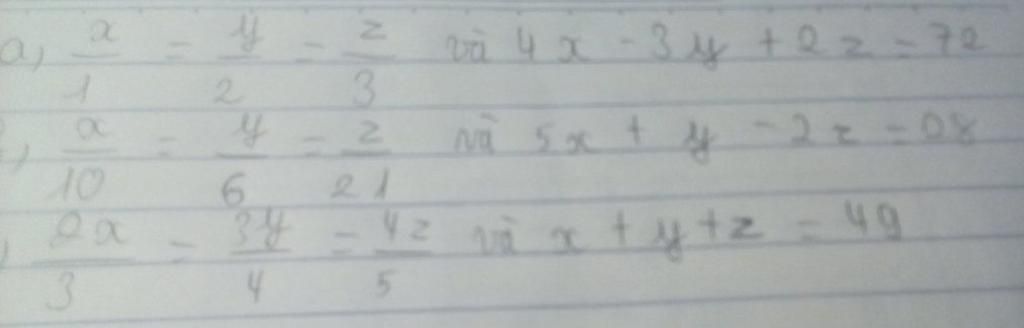 a, x/1 = y/2 = z/3 và 4x - 3y + 2z = 72
, x/10 = y/6 = z/21 và 5x + y - 2z = 28
, 2x/3 = 3y/4 = 4z/5 và x + y + z = 49